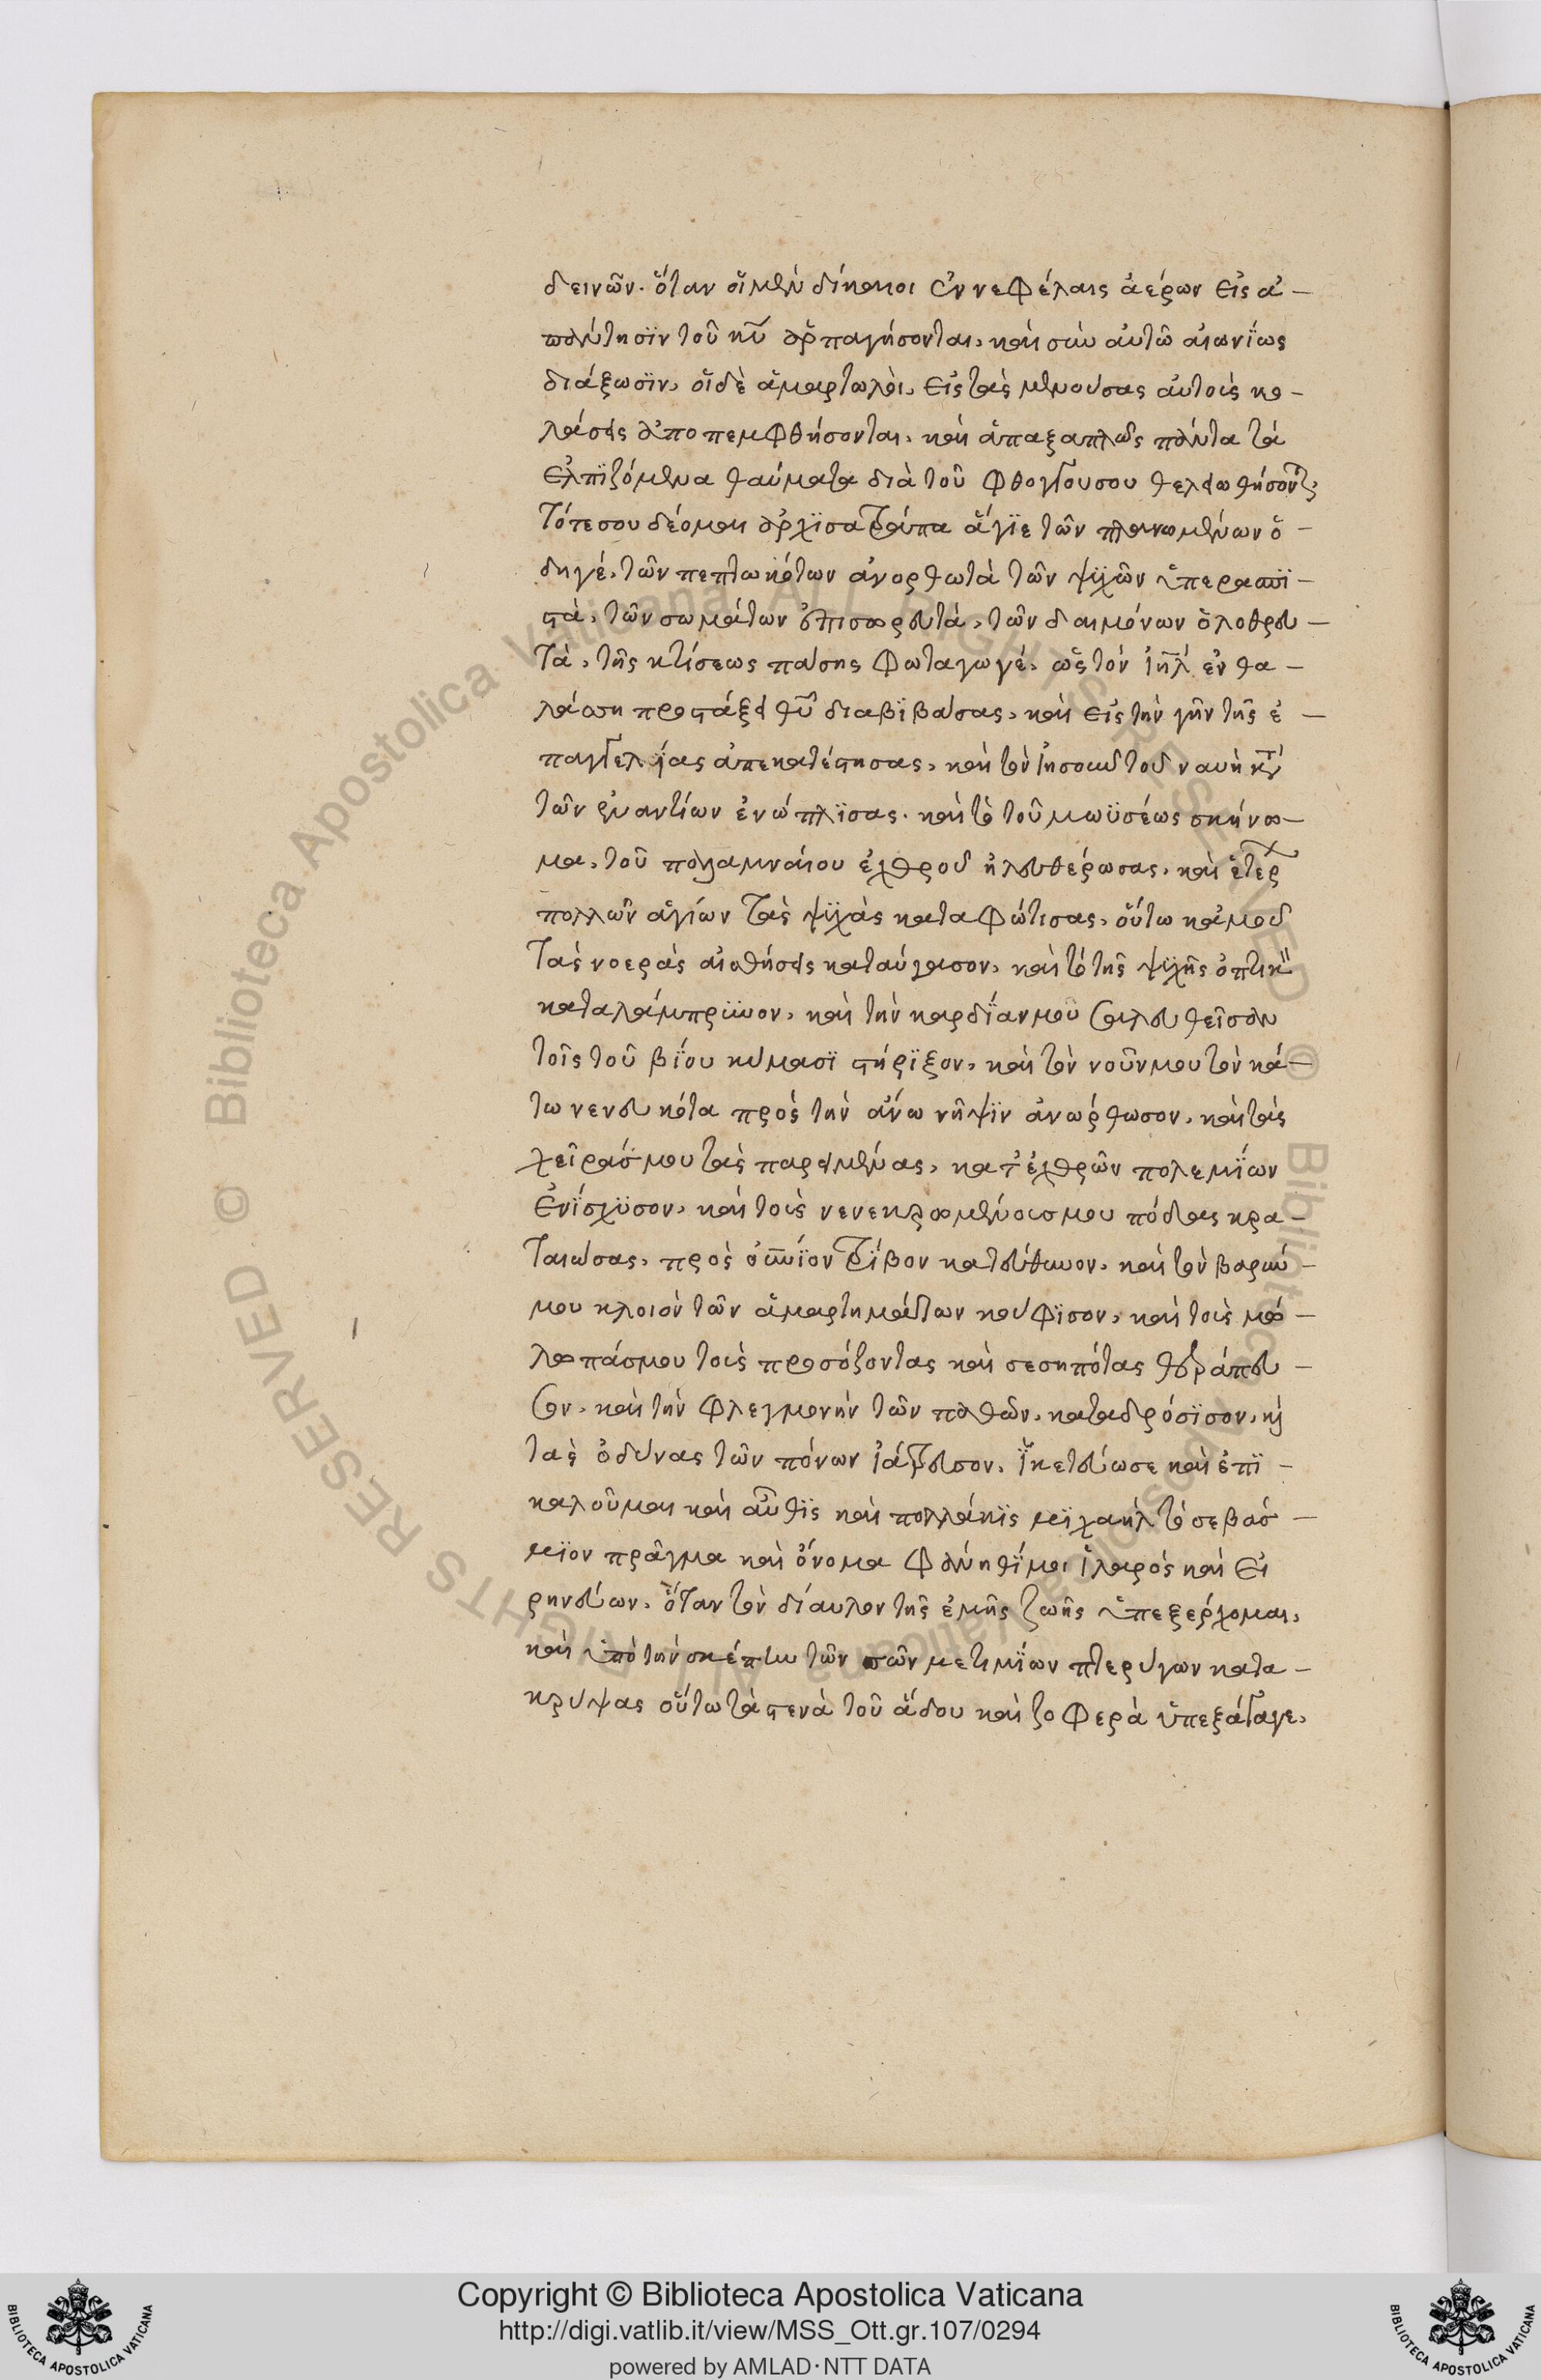 δεινῶν. ὅταν οἱ μὲν δίκαιοι ἐν νεφέλαις ἀέρων εἰς ἀ-
πάντησϊν τοῦ κυ̅ ἁρπαγήσονται, καὶ σὺν αὐτῶ αἰωνΐως
διάξωσϊν, οἱ δὲ ἁμαρτωλοὶ, εἰς τὰς μενούσας αὐτοὺς κο-
λάσεις ἀποπεμφθήσονται, καὶ ἁπαξαπλῶς πάντα τὰ
ἐλπϊζόμενα θαύματα διὰ τοῦ φθόγγου σου τελειωθήσονται,
τότε σου δέομαι ἀρχϊσατράπα ἅγϊε τῶν πλανωμένων ὁ-
δηγέ, τῶν πεπτωκότων ἀνορθωτὰ τῶν ψϋχῶν ὑπερασπϊ-
στὰ, τῶν σωμάτων ἐπισωρευτά, τῶν δαιμόνων ὀλοθρευ-
τὰ, τῆς κτίσεως πάσης φωταγωγέ, ὡς τὸν ἰη̅λ ἐν θα-
λάσση προστάξει θυ̅ διαβϊβάσας, καὶ εἰς τὴν γῆν τῆς ἐ-
παγγελΐας ἀπεκατέστησας, καὶ τὸν ἰησοῦν τοῦ ναυῆ κατὰ
τῶν ἐναντίων ἐνώπλϊσας. καὶ τὸ τοῦ μωϋσέως σκήνω-
μα, τοῦ παλαμναίου ἐχθροῦ ἠλευθέρωσας, καὶ ἑτέρων
πολλῶν ἁγίων τὰς ψϋχὰς κατὰφώτισας, οὕτω κἀμοῦ
τὰς νοερὰς αἰσθήσεις καταύγασον, καὶ τὸ τῆς ψϋχῆς ὀπτικὸν
καταλάμπρϋνον, καὶ τὴν καρδΐαν μου σαλευθεῖσαν
τοῖς τοῦ βΐου κύμασϊ στήρϊξον, καὶ τὸν νοῦν μου τὸν κά-
τω νενευκότα πρὸς τὴν ἄνω νῆψϊν ἀνώρθωσον, καὶ τὰς
χεῖράς μου τὰς παρειμένας, κατ' ἐχθρῶν πολεμΐων
ἐνΐσχϋσον, καὶ τοὺς νενεκρωμένους μου πόδας κρα-
ταιώσας, πρὸς ὁσΐον τρΐβον κατεύθυνον, καὶ τὸν βαρὺν
μου κλοιὸν τῶν ἁμαρτημάτων κούφϊσον, καὶ τοὺς μώ-
λωπάς μου τοὺς προσόζοντας καὶ σεσηπότας θεράπευ-
σον, καὶ τὴν φλεγμονὴν τῶν παθῶν, καταδρόσϊσον, κὴ
τὰς ὀδύνας τῶν πόνων ἰάτρευσον. ϊκετεύω σε καὶ ἐπϊ-
καλοῦμαι καὶ αὖθϊς καὶ πολλάκϊς μϊχαὴλ τὸ σεβάσ-
μϊον πρᾶγμα καὶ ὄνομα φάνηθΐ μοι ἱλαρὸς καὶ εἰ
ρηνεύων. ὅταν τὸν δίαυλον τῆς ἐμῆς ζωῆς ὑπεξέρχομαι,
καὶ ὑπὸ τὴν σκέπην τῶν σῶν μετιμΐων πτερύγων κατα-
κρύψας οὕτω τὰ στενὰ τοῦ ἅδου καὶ ζοφερὰ ὑπεξάγαγε,
Copyright © Biblioteca Apostolica Vaticana
http://digi.vatlib.it/view/MSS_Ott.gr.107/0294
powered by AMLAD·NTT DATA
BIBLIOTECA APOSTOLICA VATICANA
BIBLIOTECA APOSTOLICA VATICANA
© Biblioteca Apostolica Vaticana ALL RIGHTS RESERVED
© Biblioteca Apostolica Vaticana ALL RIGHTS RESERVED